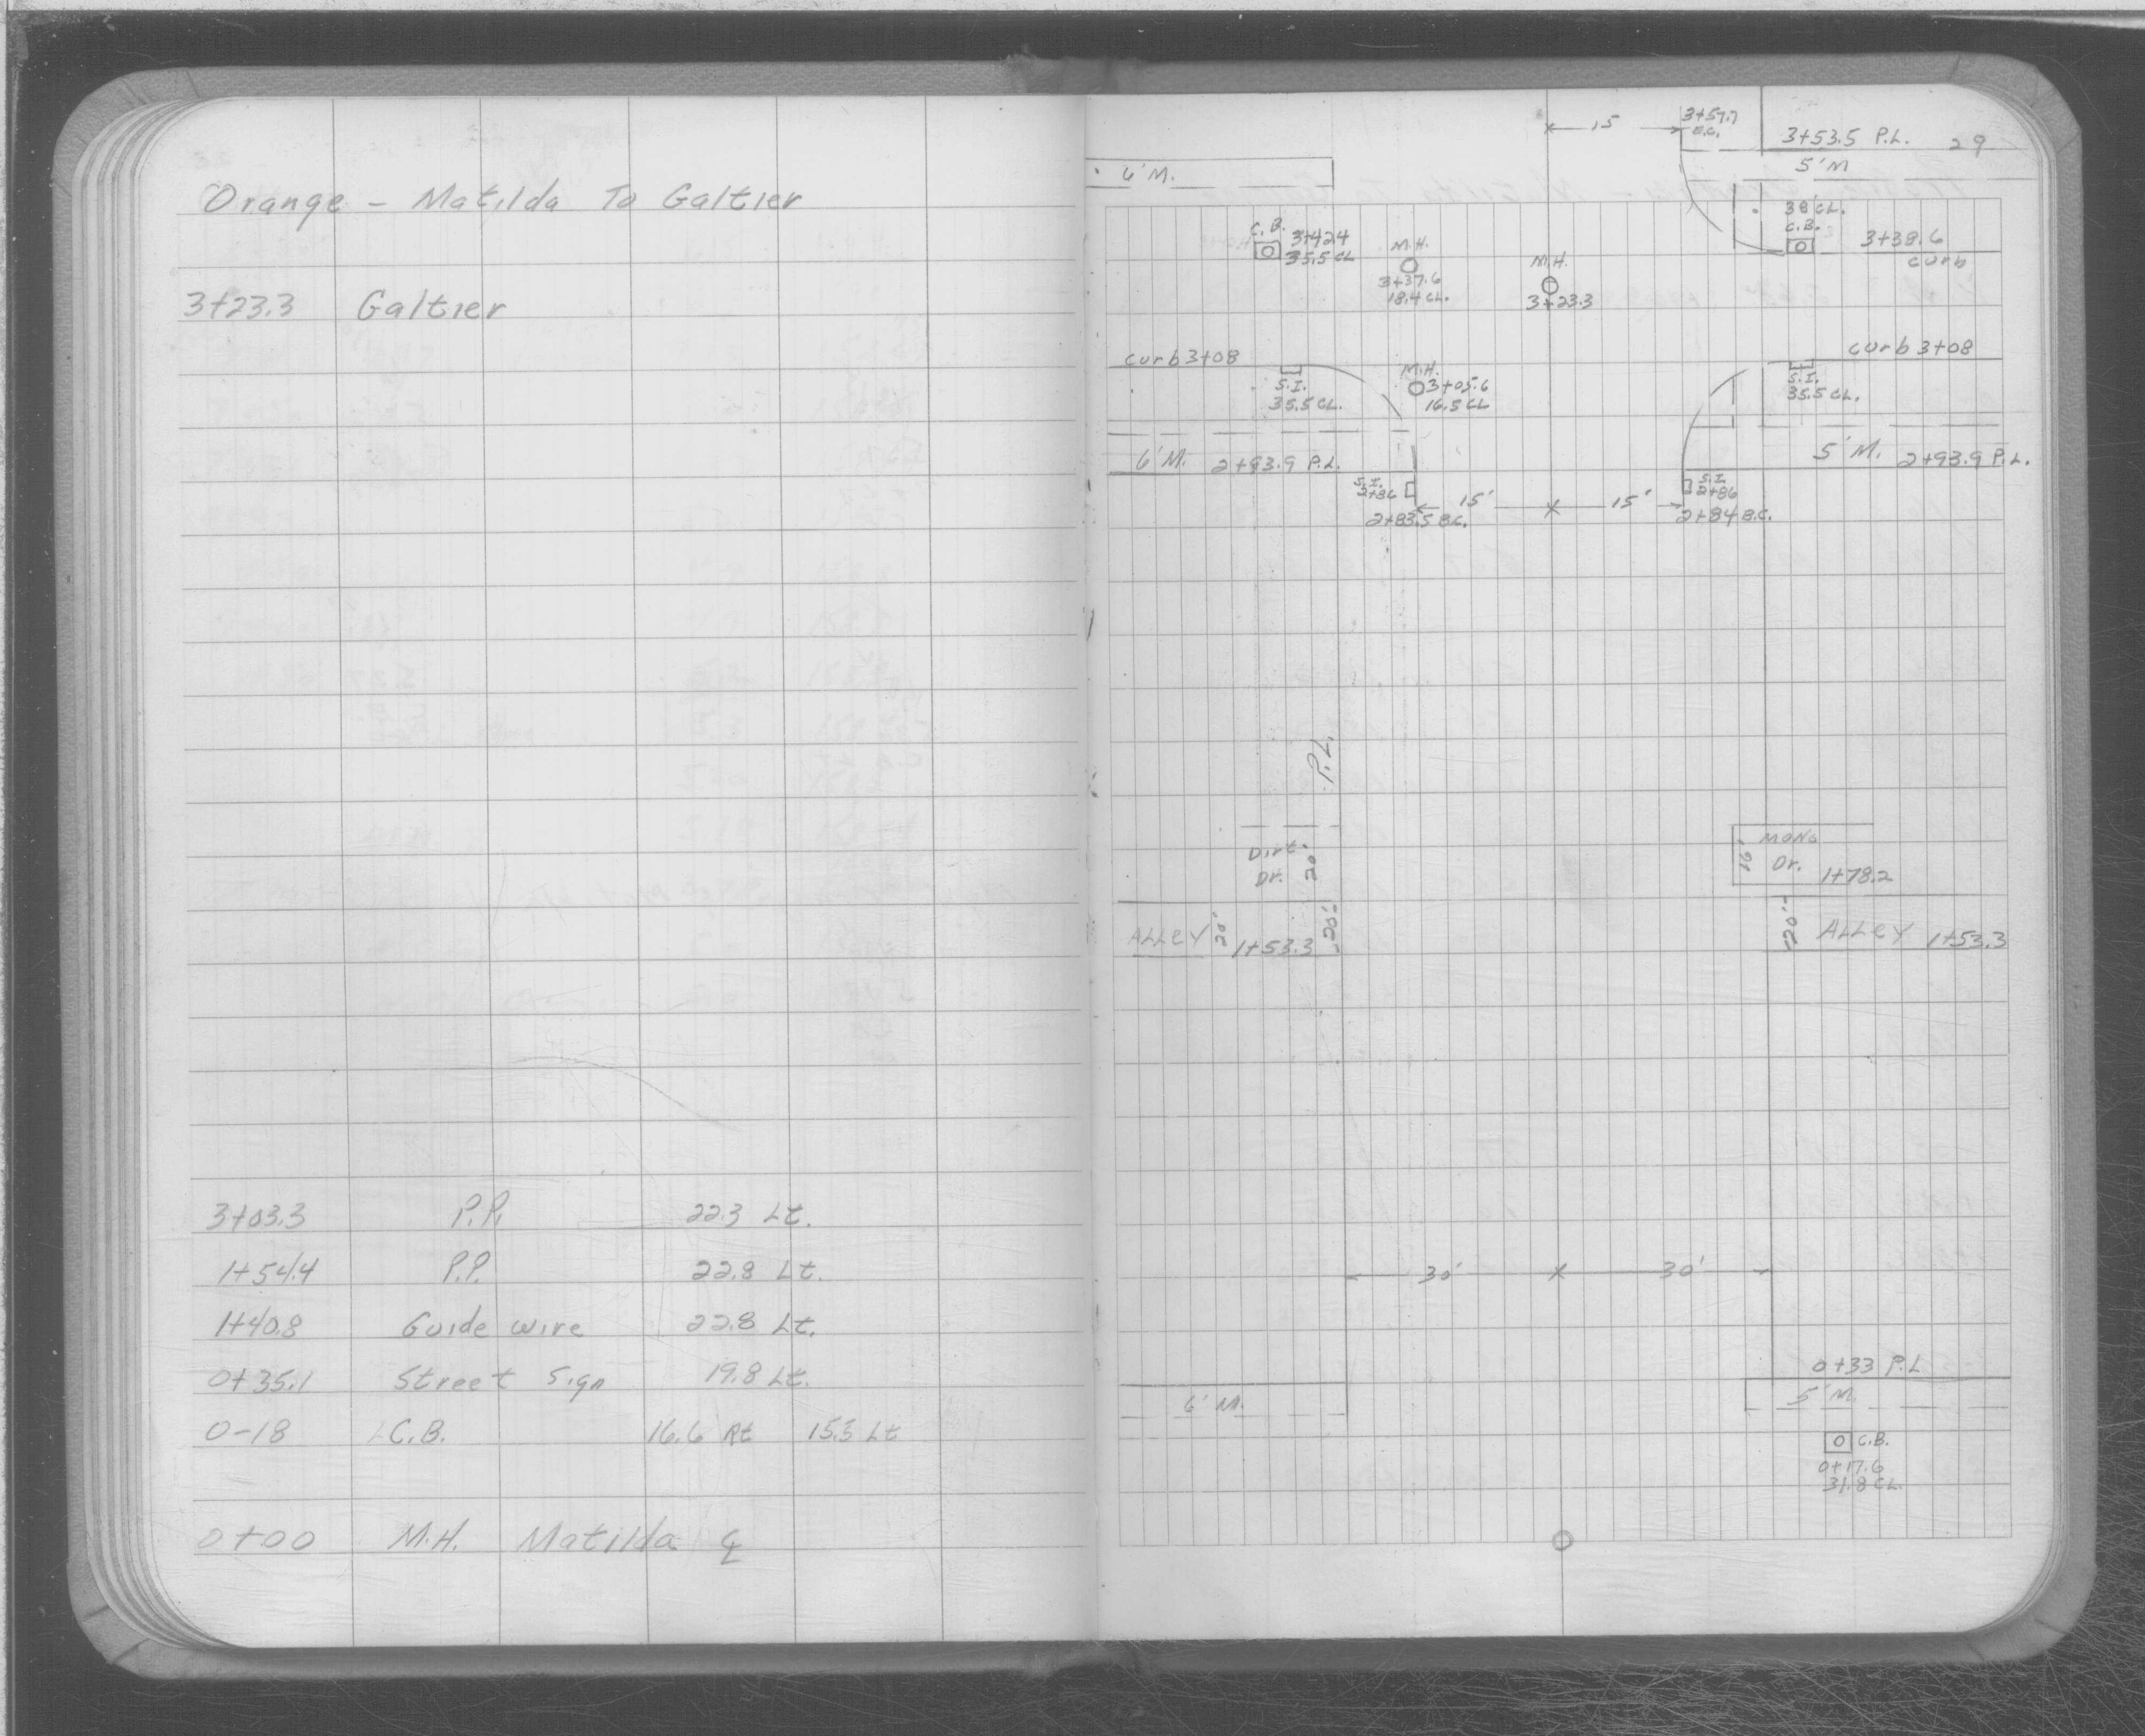 Orange - Matilda To Galtier
3+23.3 Galtier
3+03.3 P.P. 22.3 Lt.
1+54.4 P.P. 22.8 Lt.
1+40.8 Guide wire 22.8 Lt.
0+35.1 Street Sign 19.8 Lt.
0-18 C.B. 16.6 Rt 15.5 Lt
0+00 M.H. Matilda ℄
15
3+57.7
E.C.
3+53.5 P.L. 29
6'M.
5'M
C.B.
3+42.4
35.5 CL
M.H.
3+37.6
18.4 CL.
M.H.
3+23.3
38 CL.
C.B.
3+38.6
curb
curb 3+08
S.I.
35.5 CL.
M.H.
3+05.6
16.5 CL
curb 3+08
S.I.
35.5 CL.
6'M. 2+93.9 P.L.
5'M. 2+93.9 P.L.
S.I.
2+86
15'
15'
S.I.
2+86
2+83.5 B.C.
2+84 B.C.
P.L.
Dirt
Dr.
20'
16'
MONO
Dr. 1+78.2
ALLEY 20' 1+53.3
20'
20'
ALLEY 1+53.3
30'
30'
0+33 P.L
6'M.
5'M.
C.B.
0+17.6
31.8 CL.